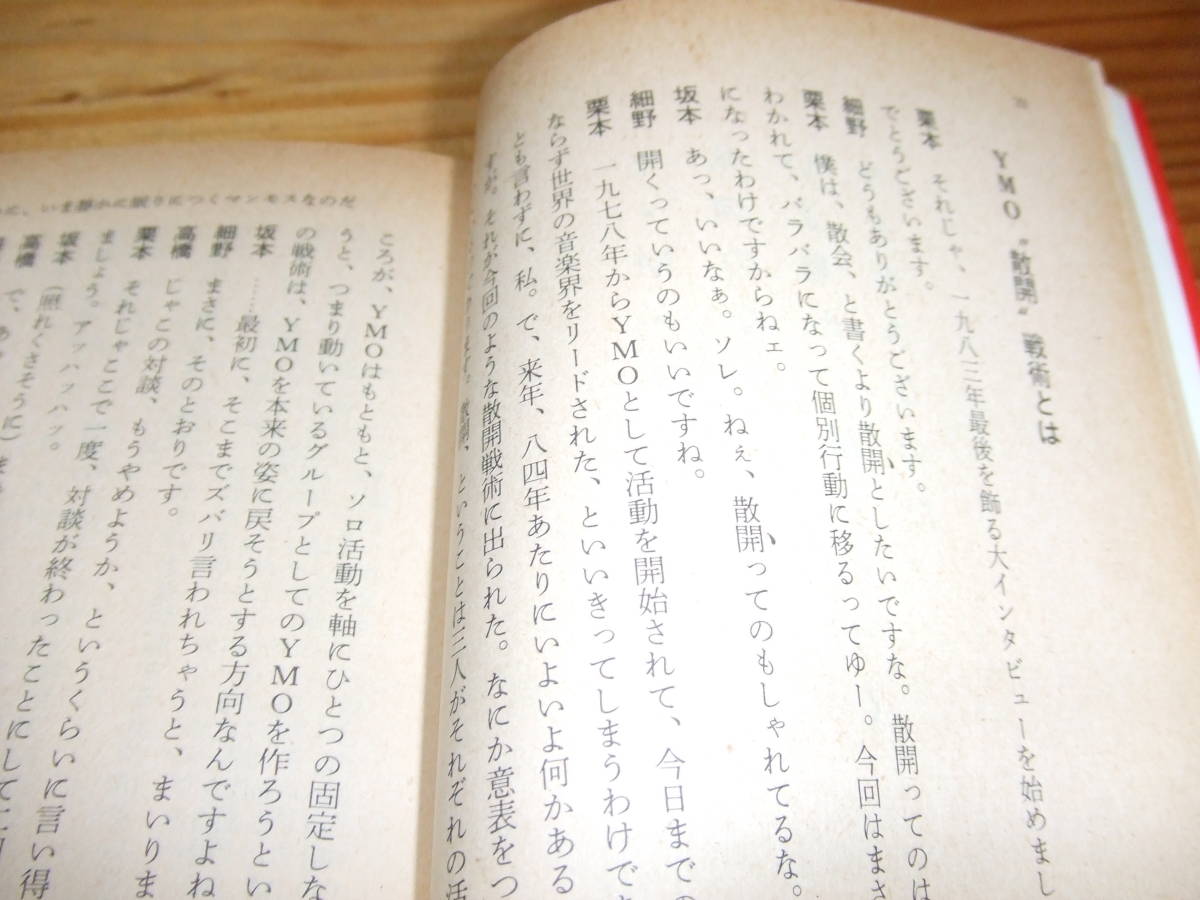 YMO〝散開〟戦術とは
栗本　それじゃ、一九八三年最後を飾る大インタビューを始めまし
でとうございます。
細野　どうもありがとうございます。
栗本　僕は、散会、と書くより散開としたいですな。散開ってのは
わかれて、バラバラになって個別行動に移るってゆー。今回はまさ
になったわけですからねェ。
坂本　あっ、いいなぁ。ソレ。ねぇ、散開ってのもしゃれてるな。
細野　開くっていうのもいいですね。
栗本　一九七八年からYMOとして活動を開始されて、今日までの
ならず世界の音楽界をリードされた、といいきってしまうわけでさ
とも言わずに、私。で、来年、八四年あたりにいよいよ何かある
すが。それが今回のような散開戦術に出られた。なにか意表をつ
散開、ということは三人がそれぞれの活
に、いま静かに眠りにつくマンモスなのだ
ころが、YMOはもともと、ソロ活動を軸にひとつの固定しな
うと、つまり動いているグループとしてのYMOを作ろうとい
の戦術は、YMOを本来の姿に戻そうとする方向なんですよね
坂本　……最初に、そこまでズバリ言われちゃうと、まいりま
細野　まさに、そのとおりです。
高橋　じゃこの対談、もうやめようか、というくらいに言い得
栗本　それじゃここで一度、対談が終わったことにしてこ
ましょう。アッハッハッ。
坂本　（照れくさそうに）ま
高橋　で、あ